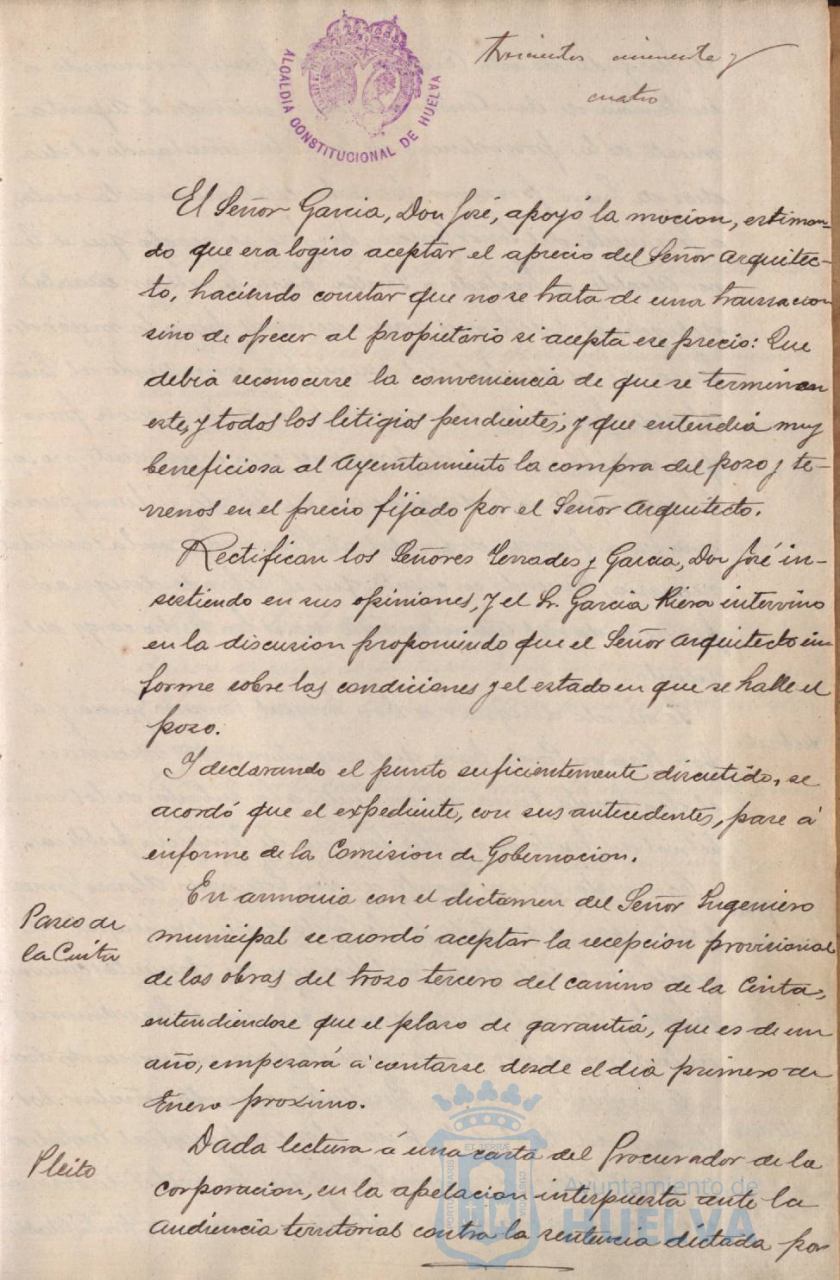 ALCALDIA CONSTITUCIONAL DE HUELVA
trecientos cincuenta y
cuatro
El Señor Garcia, Don José, apoyó la mocion, estiman-
do que era logico aceptar el aprecio del Señor Arquitec-
to, haciendo constar que no se trata de una transacion
sino de ofrecer al propietario si acepta ese precio: Que
debia reconocerse la conveniencia de que se terminen
este, y todos los litigios pendientes, y que entendia muy
beneficiosa al Ayuntamiento la compra del pozo y te-
rrenos en el precio fijado por el Señor Arquitecto.
Rectifican los Señores Terrades y Garcia, Don José in-
sistiendo en sus opiniones, y el Sr. Garcia Riera intervino
en la discusion proponiendo que el Señor Arquitecto in-
forme sobre las condiciones y el estado en que se halle el
pozo.
Y declarando el punto suficientemente discutido, se
acordó que el expediente, con sus antecedentes, pase á
informe de la Comision de Gobernacion.
Paseo de
la Cinta
En armonia con el dictamen del Señor Ingeniero
municipal se acordó aceptar la recepcion provisional
de las obras del trozo tercero del camino de la Cinta,
entendiendose que el plazo de garantiá, que es de un
año, empezará á contarse desde el dia primero de
Enero proximo.
Pleito
Dada lectura á una carta del Procurador de la
corporacion, en la apelacion interpuesta ante la
Audiencia territorial contra la sentencia dictada por
Ayuntamiento de
HUELVA